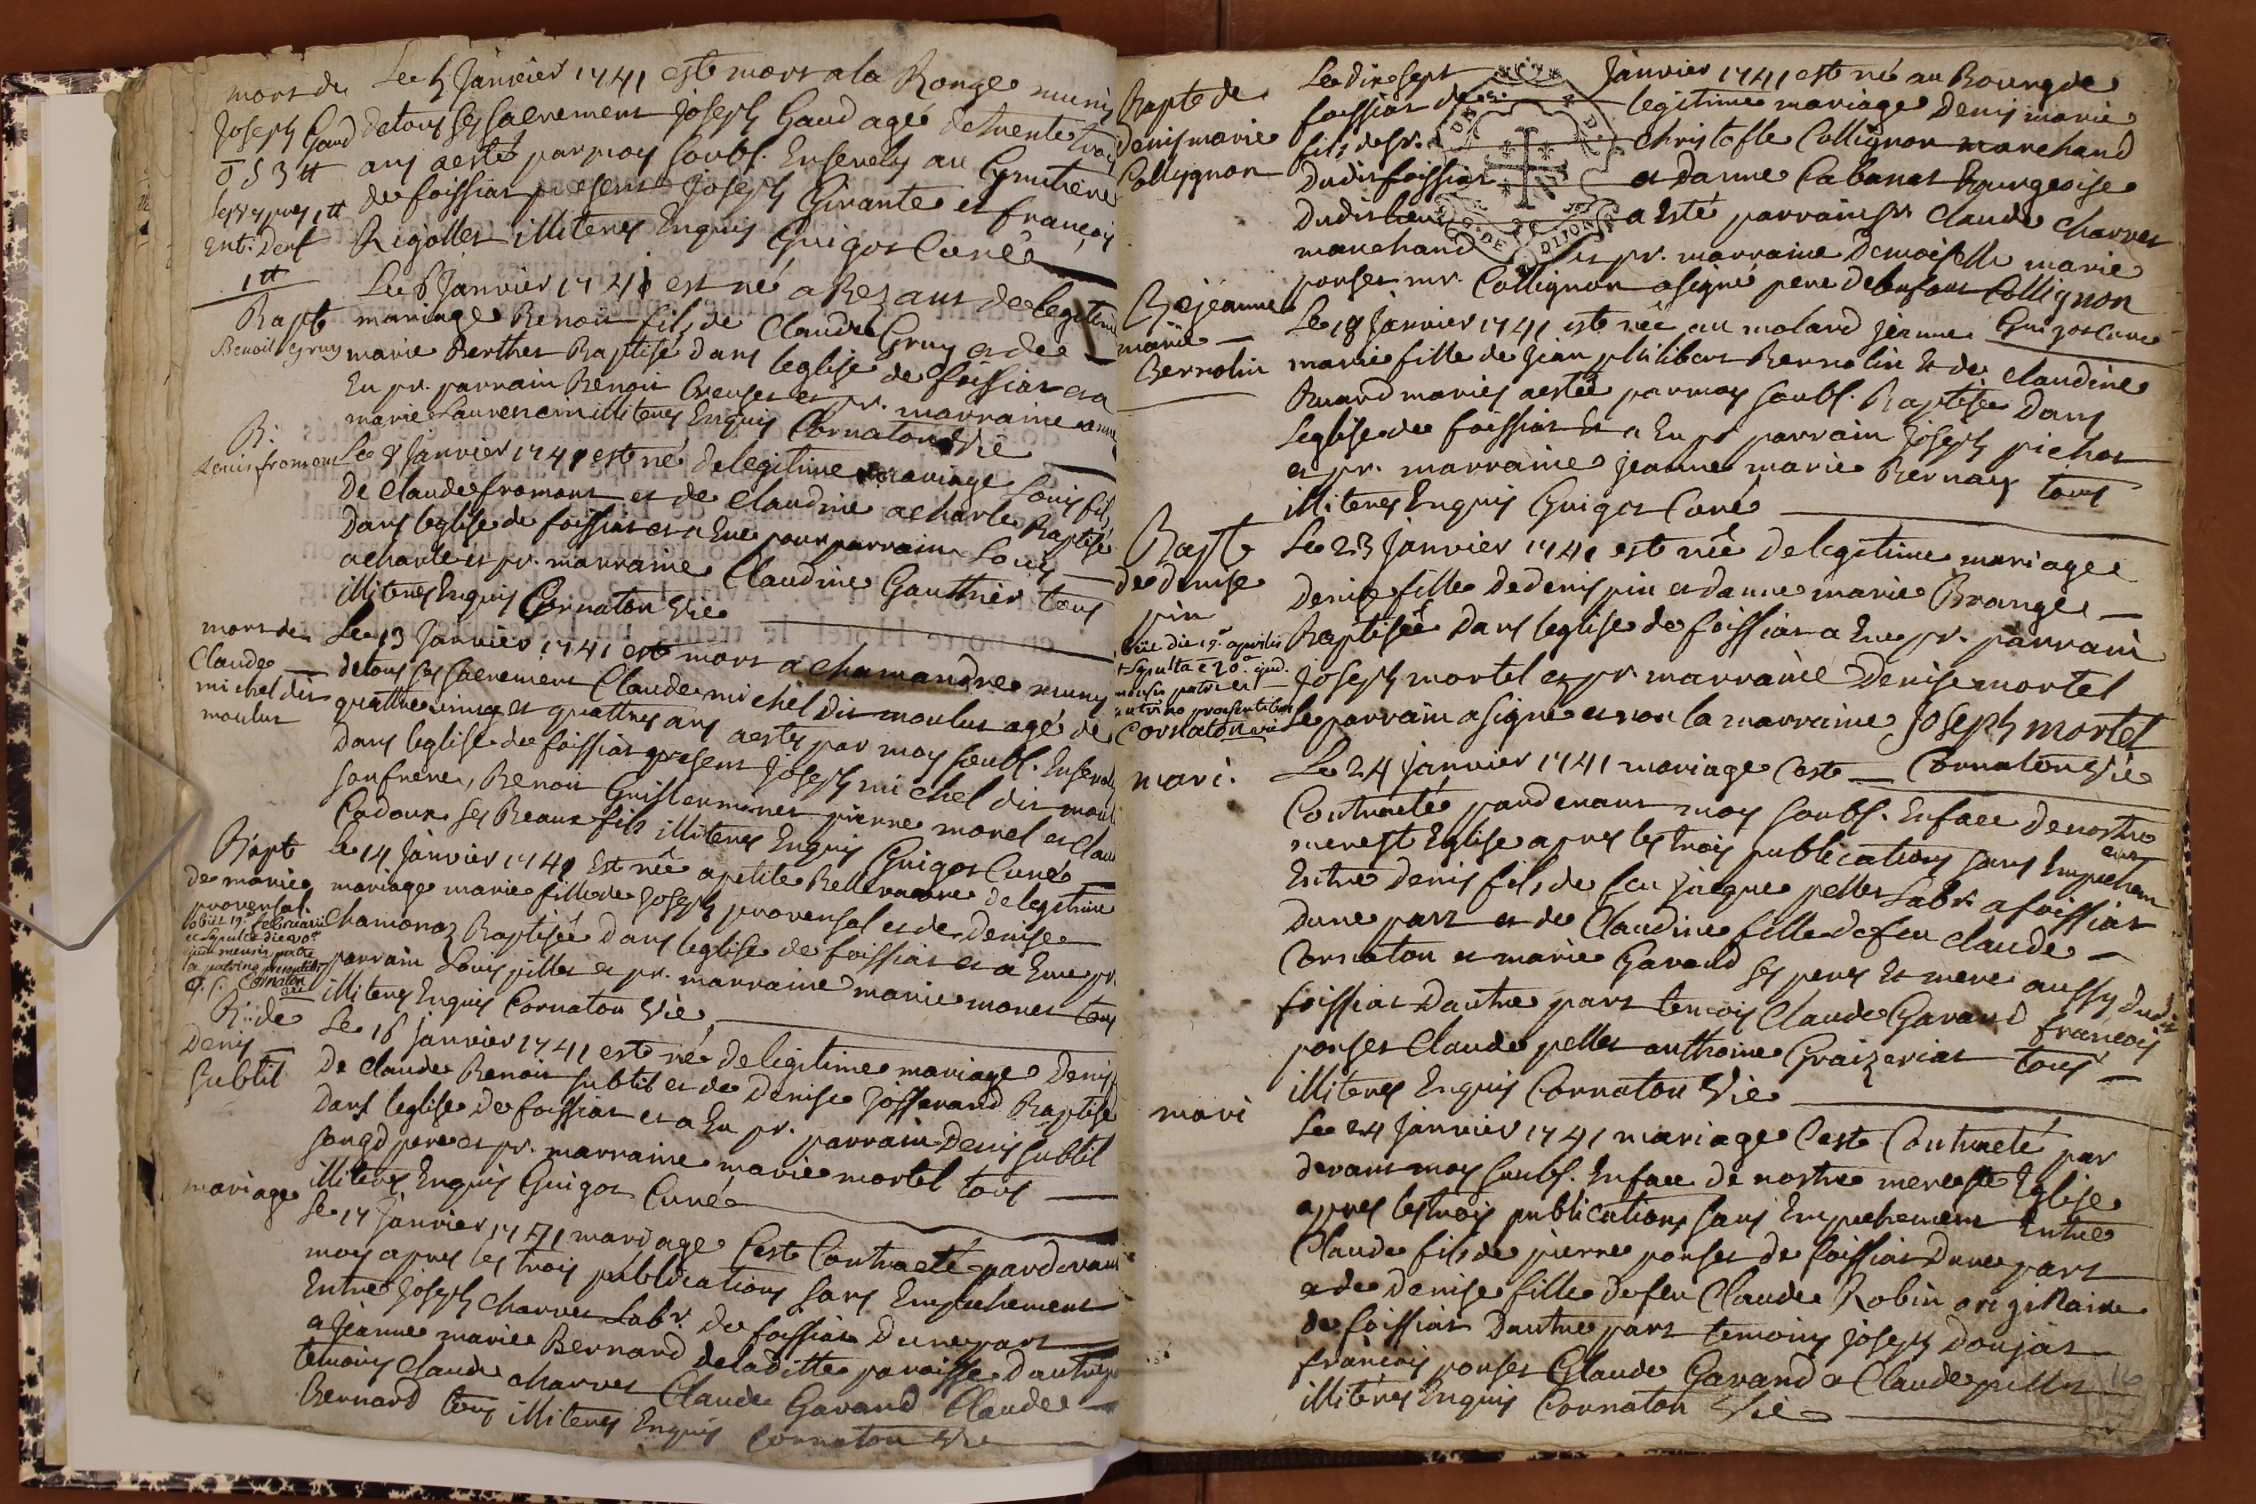 mort de
Joseph Gaud
Le 5 Janvier 1741 este mort a la Ronge muny
de tous ses sacrement Joseph Gaud agé de trente trois
ans a esté par moy soubs. Ensevely au Cymetiere
de foissiat present Joseph Girante et francois
Rigollet illiteres Enquis Guigot Curé
1tt
Bapt
Benoit Gruy
Le 6 Janvier 1741 est né a Bezant de legitime
mariage Benoit fils de Claude Gruy et de
marie Berthet Baptisé dans leglise de foissiat et a
Eu pr. parrain Benoit Creuset et pr. marraine anne
marie Laurencin illiteres Enquis Cornaton Vic
B.
Louis fromont
Le 8 Janvier 1741 est né de legitime mariage Louis fils
De Claude fromont et de Claudine acharle Baptisé
Dans leglise de foissiat et a Eue pour parrain Louis
acharle et pr. marraine Claudine Gauthier tous
illiteres Enquis Cornaton Vic
mort de
Claude
michel dit
moulut
Le 13 Janvier 1741 este mort a chamandre muny
de tous ses sacrement Claude michel dit moulut agé de
quattre vingt et quattres ans a estés par moy soubs. Ensevely
Dans leglise de foissiat present Joseph michel dit moulut
son frere, Benoit Guillerminet pierre morel et Claude
Cadoux ses Beaux fils illiteres Enquis Guigot Curé
Bapt
de marie
provensal
obiit 19a februarii
Cornaton
vic
Le 14 Janvier 1741 Est née a petite Bellevavre de legitime
mariage marie fille de Joseph provensal et de Denise
Chamonaz Baptisée Dans leglise de foissiat et a Eue pr.
parrain Louis pillet et pr. marraine marie monet tous
illiteres Enquis Cornaton Vic
B. de
Denis
Subtil
Le 16 Janvier 1741 est né de legitime mariage Denis
De Claude Benoit Subtil et de Denise Josserand Baptisé
Dans leglise de foissiat et a Eu pr. parrain Denis Subtil
son gd pere et pr. marraine marie mortel tous
illiteres Enquis Guigot Curé
mariage
Le 17 Janvier 1741 mariage Cest Contracté pardevant
moy apres les trois publications sans Empechement
Entre Joseph charvet Labr. de foissiat Dune part
a Jeanne marie Bernard de la ditte paroisse Dautre part
temoins Claude charvet Claude Gavand Claude
Bernard tous illiteres Enquis Cornaton Vic
Bapte de
Denis marie
Collignon
Le Dixsept Janvier 1741 est né au Bourg de
foissiat de legitime mariage Denis marie
fils de Sr. christofle Collignon marchand
Dudit foissiat et danne Cabanet Bourgeoise
Dudit lieu a Esté parrain sr. Claude charvet
marchand Et pr. marraine Demoiselle marie
ponset mr. Collignon a signé pere de lenfant Collignon
Guigot Curé
B. de jeanne
marie
Bernolin
Le 18 Janvier 1741 este née au molard jeanne
marie fille de Jean philibert Bernolin Et de Claudine
Buard mariés a estée par moy soubs. Baptisée Dans
Leglise de foissiat Et a Eu pr parrain Joseph pichot
et pr. marraine jeanne marie Bernaz tous
illiteres Enquis Guigot Curé
Bapt
de denise
pin
obiit die 19a aprilis
Sepulta e 20a ejusd.
mensis patre et
patrino praesentibus
Cornaton vic
Le 23 Janvier 1741 est née de legitime mariage
Denise fille de denis pin et danne marie Brange
Baptisée Dans leglise de foissiat a Eue pr. parrain
Joseph mortel et pr. marraine Denise mortel
Le parrain a signé et non la marraine Joseph mortel
Cornaton Vic
mari.
Le 24 Janvier 1741 mariage Ceste
Contracté pardevant moy soubs. En face de nostre
mere ste Eglise apres les trois publications sans Empechem
ent
Entre Denis fils de feu Jacque pellet Labr. a foissiat
Dune part et de Claudine fille de feu Claude
Cornaton et marie Gavand ses pere Et mere aussy dudit
foissiat Dautre part temois Claude Gavand francois
ponset Claude pellet anthoine Graizeriat tous
illiteres Enquis Cornaton Vic
mari
Le 24 Janvier 1741 mariage Ceste Contracté par
devant moy soubs. En face de nostre mere ste Eglise
apres les trois publications sans Empechement Entre
Claude fils de pierre ponset de foissiat Dune part
et de Denise fille de feu Claude Robin originaire
de foissiat Dautre part temoins Joseph Donjat
francois ponset Claude Gavand et Claude pellet
illiteres Enquis Cornaton Vic
16